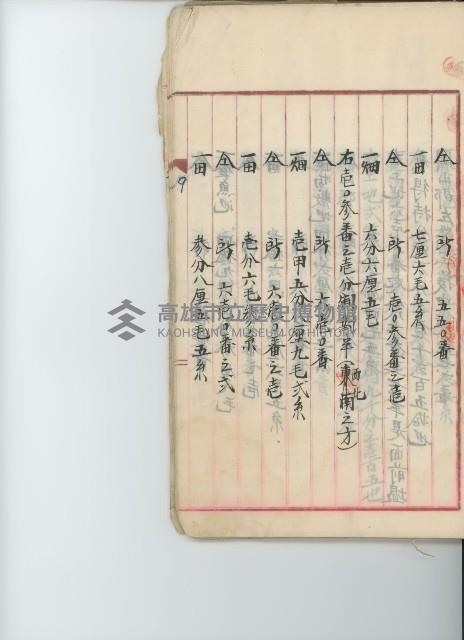 仝 所 五五〇番
一田 七厘六毛五糸
仝 所 壱〇参番之壱
一畑 六分六厘五毛
右壱〇参番之壱分割対半(東南之方)
西北
仝 所 六壱〇番
一畑 壱甲五分 厘九毛弐糸
仝 所 六壱〇番之壱
一田 壱分六毛 糸
仝 所 六壱〇番之弐
一田 参分八厘五毛五糸
9
高雄市立歷史博物館
KAOHSIUNG MUSEUM OF HISTORY